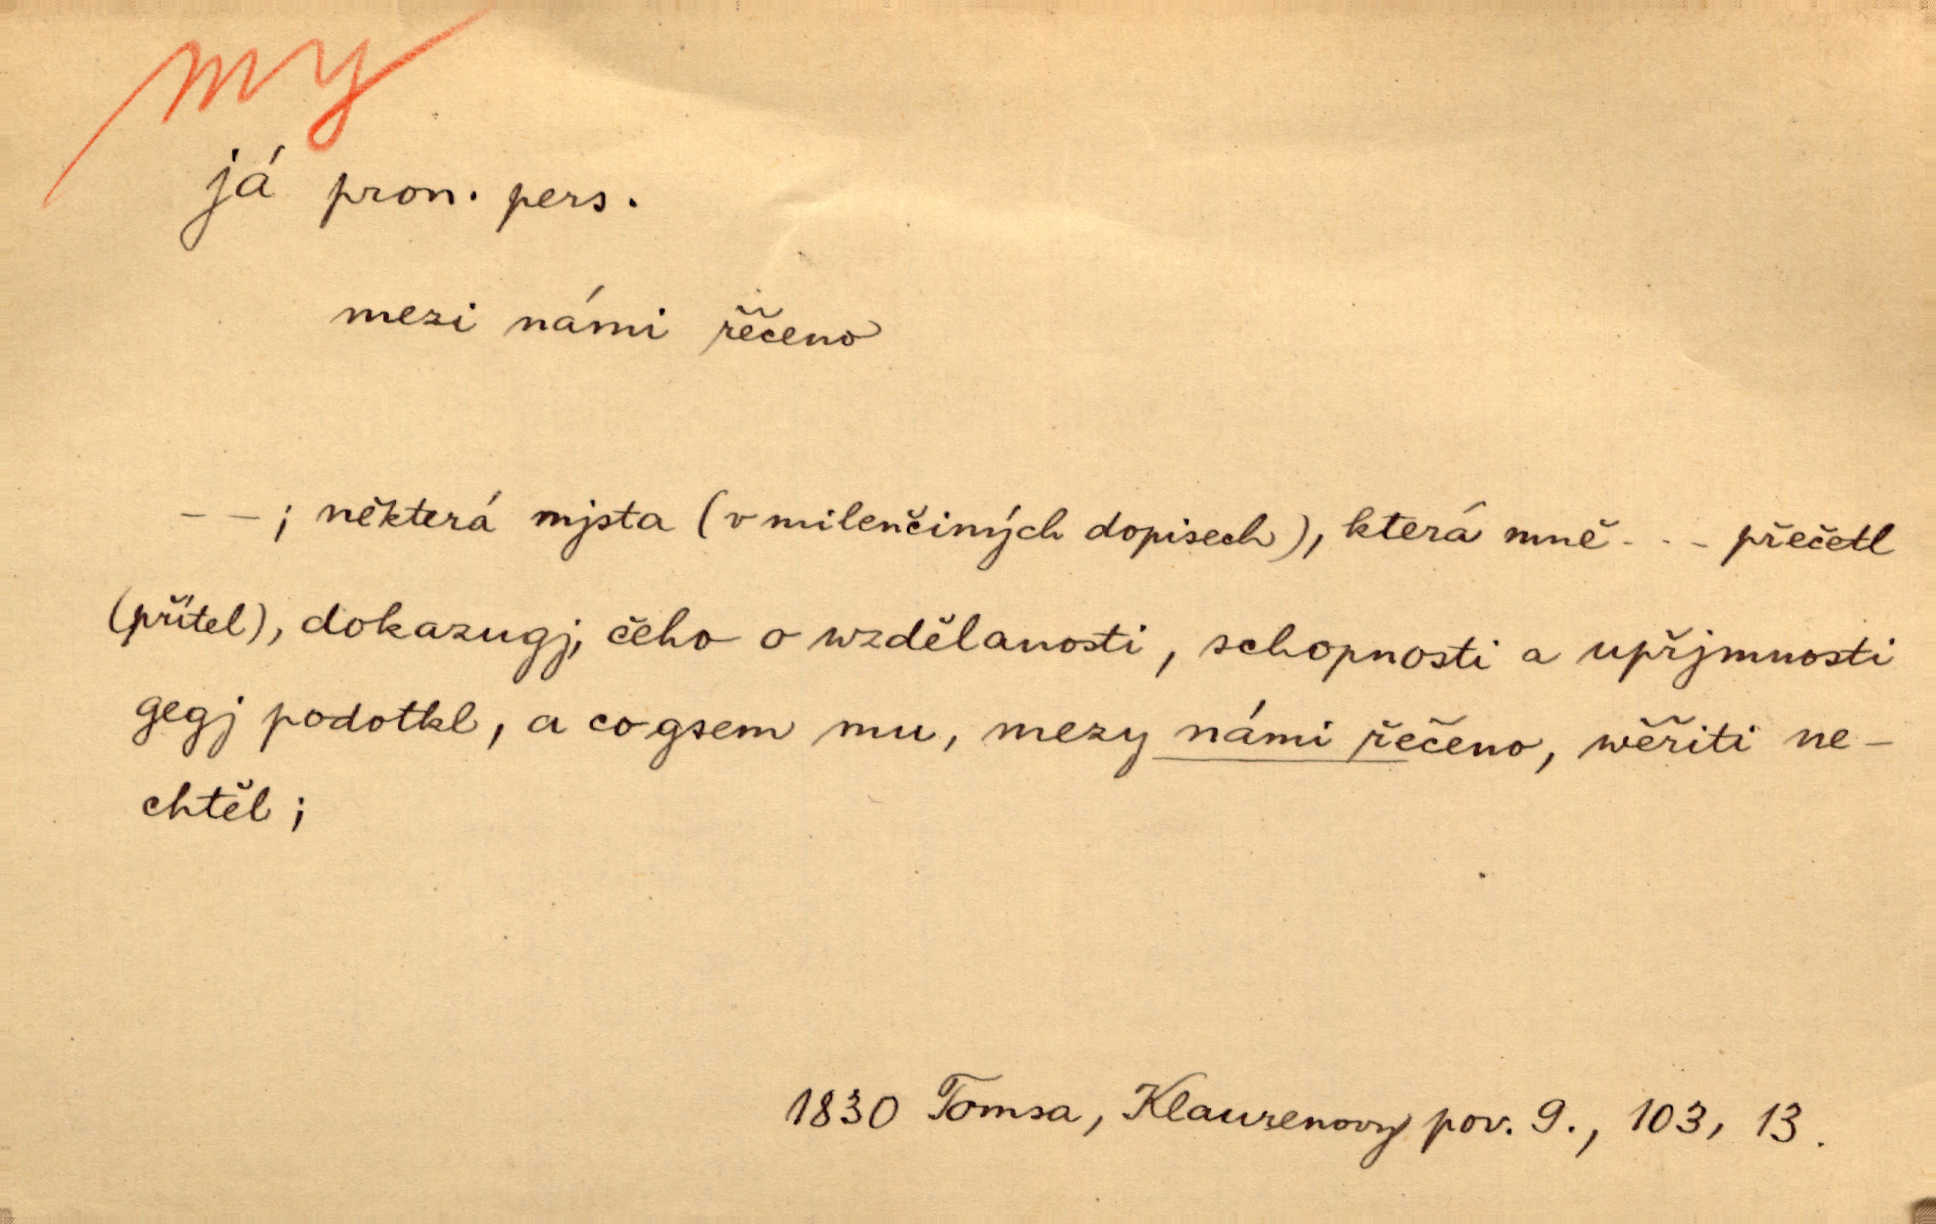 my
já pron. pers.
mezi námi řečeno
– – ; některá mjsta (v milenčiných dopisech), která mně - - - přečetl
(přítel), dokazugj, čeho o wzdělanosti, schopnosti a upřjmnosti
gegj podotkl, a co gsem mu, mezy námi řečeno, wěřiti ne-
chtěl ;
1830 Tomsa, Klaurenovy pov. 9., 103, 13.